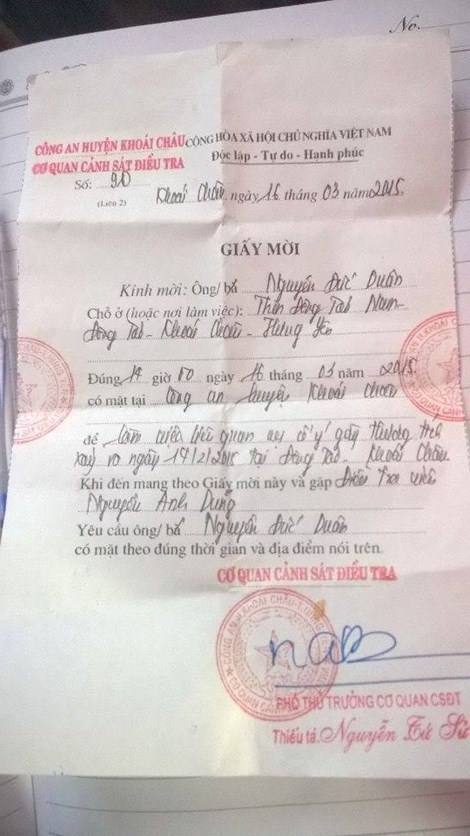 No.
CÔNG AN HUYỆN KHOÁI CHÂU CỘNG HÒA XÃ HỘI CHỦ NGHĨA VIỆT NAM
CƠ QUAN CẢNH SÁT ĐIỀU TRA Độc lập - Tự do - Hạnh phúc
Số: 90
(Liên 2)
Khoái Châu, ngày 16 tháng 03 năm 2015.
GIẤY MỜI
Kính mời: Ông/ bà Nguyễn Đức Duân
Chỗ ở (hoặc nơi làm việc): Thôn Đông Tảo Nam-
Đông Tảo - Khoái Châu - Hưng Yên
Đúng 14 giờ 00 ngày 16 tháng 03 năm 2015.
có mặt tại Công an huyện Khoái Châu
để làm việc liên quan vụ cố ý gây thương tích
xảy ra ngày 17/2/2015 tại Đông Tảo - Khoái Châu
Khi đến mang theo Giấy mời này và gặp Điều tra viên
Nguyễn Anh Dũng
Yêu cầu ông/ bà Nguyễn Đức Duân
có mặt theo đúng thời gian và địa điểm nói trên.
CƠ QUAN CẢNH SÁT ĐIỀU TRA
PHÓ THỦ TRƯỞNG CƠ QUAN CSĐT
Thiếu tá. Nguyễn